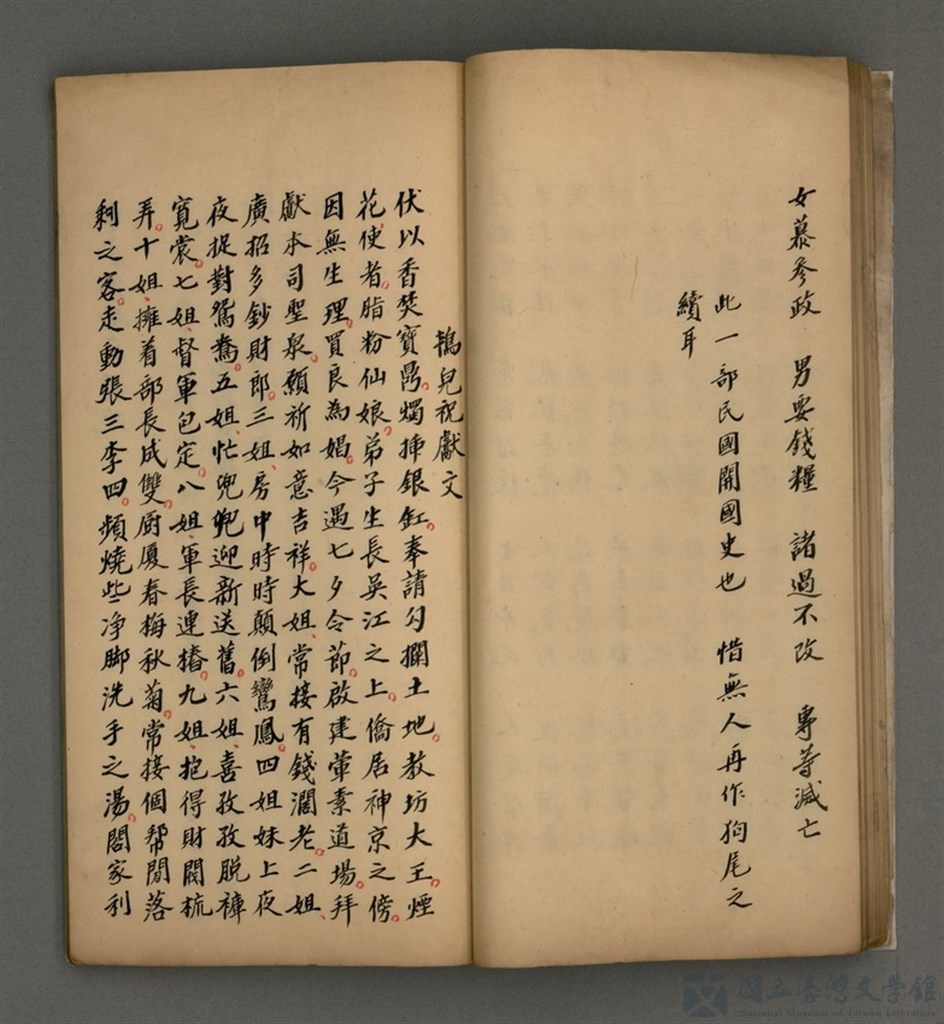 女慕參政　男要錢糧　諸過不改　專等滅亡
此一部民國開國史也　惜無人再作狗尾之
續耳
鴇兒祝獻文
伏以香焚寶鼎。燭揷銀缸。奉請勾攔土地。教坊大王。煙
花使者。脂粉仙娘。弟子生長吳江之上。僑居神京之傍。
因無生理。買良為娼。今遇七夕令節。啟建葷素道場。拜
獻本司聖泉。願祈如意吉祥。大姐、常接有錢濶老。二姐、
廣招多鈔財郎。三姐、房中時時顛倒鸞鳳。四姐妹上夜
夜捉對鴛鴦。五姐、忙兜兜迎新送舊。六姐、喜孜孜脫褲
寬裳。七姐、督軍包定。八姐、軍長連樁。九姐、抱得財閥梳
弄。十姐、擁着部長成雙。厨厦春梅秋菊。常接個幫閒落
剩之客。走動張三李四。頻燒些净脚洗手之湯。閤家利
國立臺灣文學館
National Museum of Taiwan Literature